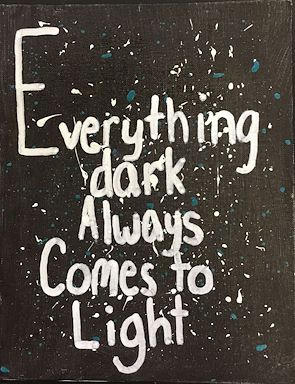 Everything
dark
Always
Comes to
Light